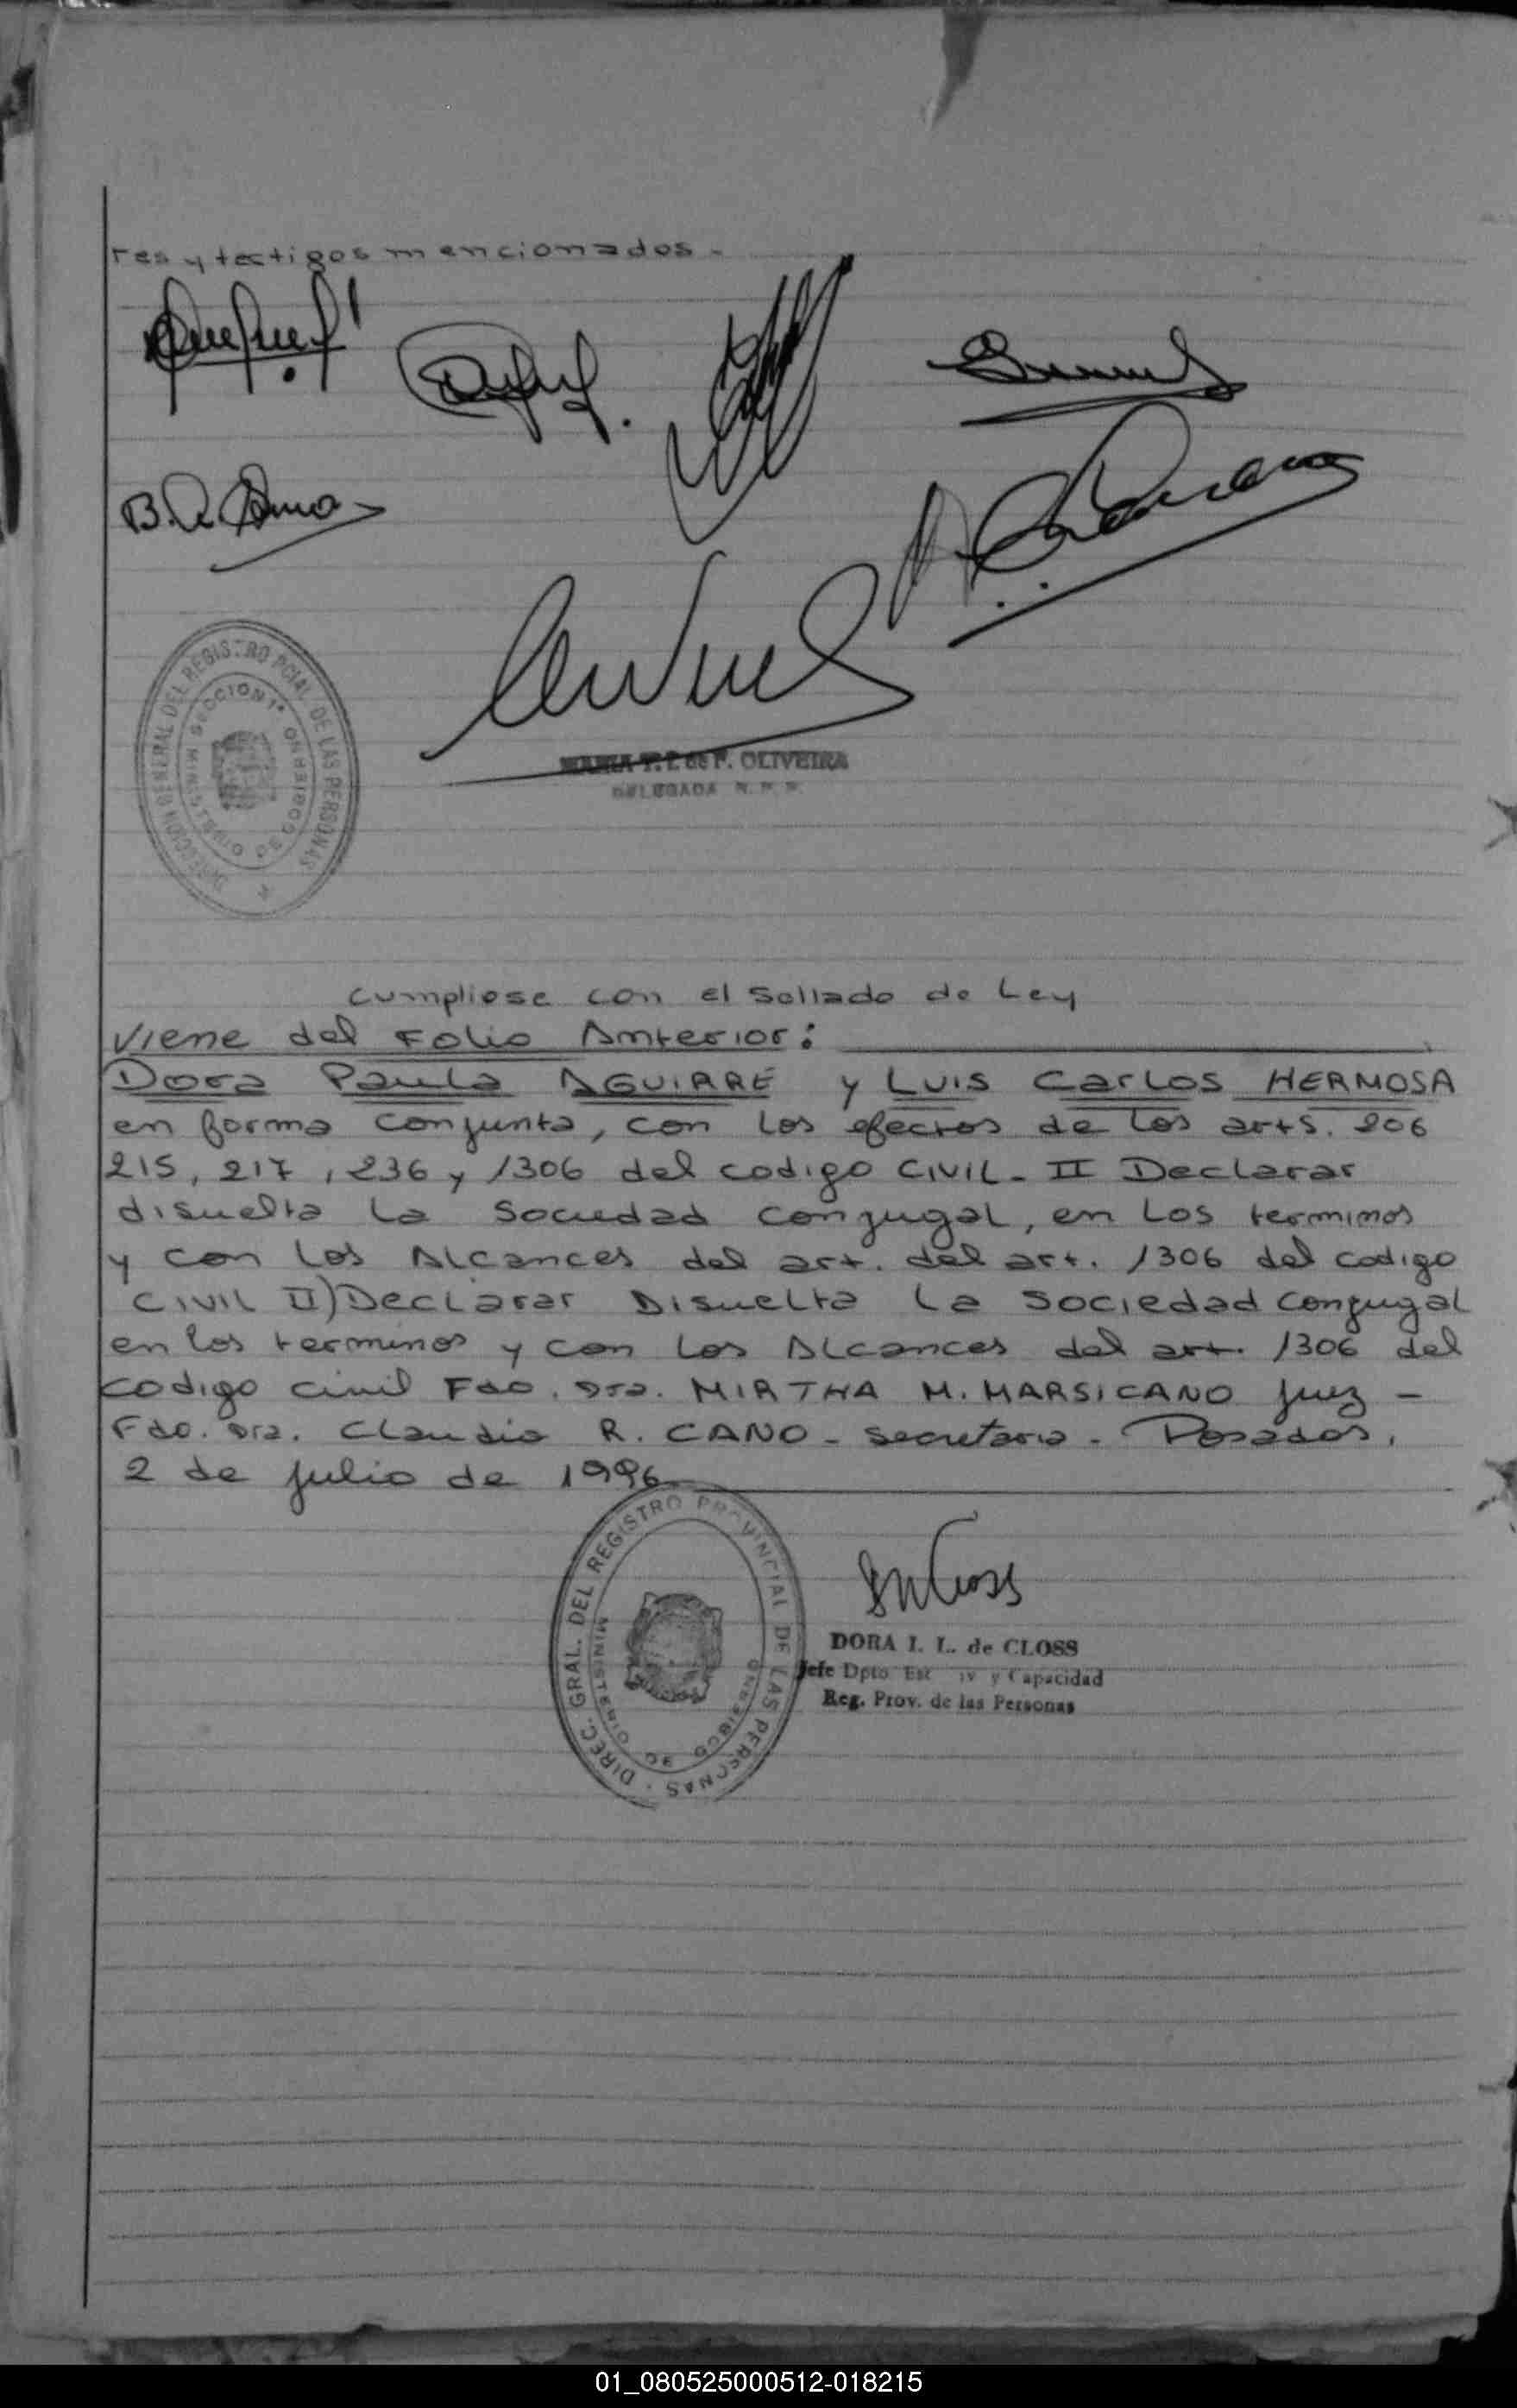 res y testigos mencionados -
DIRECCION GENERAL DEL REGISTRO PCIAL. DE LAS PERSONAS
MINISTERIO DE GOBIERNO
SECCION 1ª
OLIVEIRA
DELEGADA
cumpliose con el sellado de Ley
Viene del Folio Anterior:
Dora Paula AGUIRRE y LUIS Carlos HERMOSA
en forma conjunta, con los efectos de los arts. 206
215, 217, 236 y 1306 del codigo CIVIL - II Declarar
disuelta la Sociedad conjugal, en los terminos
y con los Alcances del art. del art. 1306 del codigo
CIVIL II) Declarar Disuelta la Sociedad conjugal
en los terminos y con los Alcances del art. 1306 del
codigo civil Fdo. Dra. MIRTHA M. MARSICANO Juez -
Fdo. Dra. Claudia R. CANO - Secretaria - Posadas,
2 de julio de 1996
DIREC. GRAL. DEL REGISTRO PROVINCIAL DE LAS PERSONAS
MINISTERIO DE GOBIERNO
DORA I. L. de CLOSS
Jefe Dpto. y Capacidad
Reg. Prov. de las Personas
01_080525000512-018215